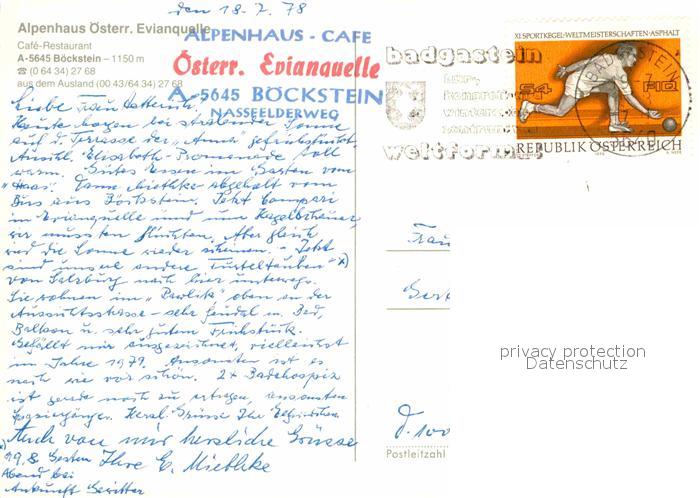 den 18.7.78
Alpenhaus Österr. Evianquelle
Café-Restaurant
A-5645 Böckstein – 1150 m
☎ (0 64 34) 27 68
aus dem Ausland (00 43/64 34) 27 68
ALPENHAUS - CAFE
Österr. Evianquelle
A-5645 BÖCKSTEIN
NASSFELDERWEG
badgastein
kur-
weltformat
BADGASTEIN
XI. SPORTKEGEL-WELTMEISTERSCHAFTEN-ASPHALT
S4
FIQ
REPUBLIK ÖSTERREICH
Liebe Frau
Heute morgen bei strahlender Sonne
auf d. Terrasse der "Anna" gefrühstückt,
Ansichl. Elisabeth-Promenade toll
warm. Gutes Essen im Garten vom
"Haas". Dann Miethke abgeholt vom
Bus aus Böckstein. Jetzt Campari
im Evianquelle und nun Hagelschauer,
wir mussten flüchten. Aber gleich
wird die Sonne wieder scheinen. - Jetzt
sind unsere andere "Turteltauben" x)
von Salzburg nach hier unterwegs.
Sie wohnen im "Pawlik" oben an der
Aussichtsstrasse - sehr feudal m. Bad,
Balkon u. sehr gutem Frühstück.
Gefällt mir ausgezeichnet, vielleicht
im Jahre 1979. Ansonsten ist es
nach wie vor schön. 2x Badehospiz
ist gerade noch zu ertragen, ansonsten
Spaziergänger. Herzl. Grüsse Ihre
Auch von mir herzliche Grüsse
Ihre E. Miethke
x) 19,8 Gestern
Abend bei
Ankunft Gewitter
Frau
Gert
D. 100
Postleitzahl
privacy protection
Datenschutz